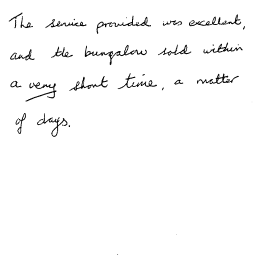 The service provided was excellent,
and the bungalow sold within
a very short time, a matter
of days.